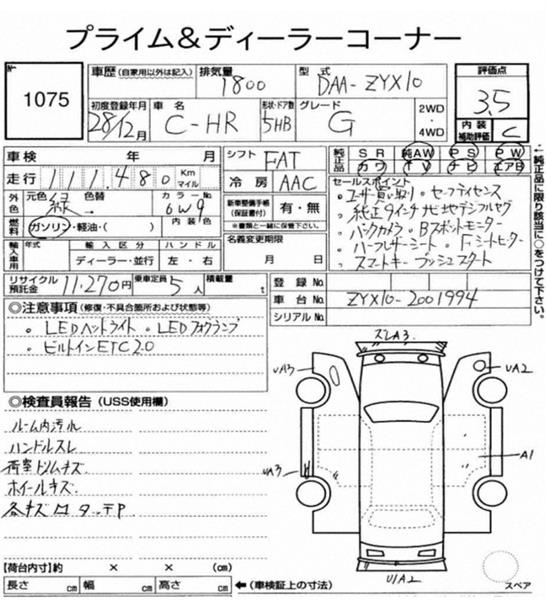 プライム&ディーラーコーナー
№
1075
車歴 (自家用以外は記入)
排気量
1800
型式
DAA-ZYX10
評価点
3.5
初度登録年月
28/12月
車名
C-HR
形状・ドア数
5HB
グレード
G
2WD
・
4WD
内装
補助評価
C
車検 年 月
シフト
FAT
純正品
SR 純AW PS PW
カワ TV ナビ エアB
走行 111,480 Km
マイル
冷房
AAC
セールスポイント
。ユーザー買い取り 。セーフティセンス
。純正9インチナビ地デジフルセグ
。バックカメラ 。Bスポットモニター
。ハーフレザーシート 。Fシートヒーター
。スマートキー プッシュスタート
外色
元色
緑
色替
カラーNo
6W9
新車整備手帳
(保証書付)
有・無
※書類と一緒に保管して下さい。
燃料
ガソリン・軽油・( )
内装色
輸入車用
年式
輸入区分
ディーラー・並行
ハンドル
左・右
名義変更期限
月 日
↑純正品に限り該当に○をつけて下さい。
リサイクル
預託金
11,270円
乗車定員
5人
積載量
t
登録No.
車台No.
ZYX10-2001994
シリアルNo.
◎注意事項 (修復・不具合箇所および状態等)
。LEDヘッドライト 。LEDフォグランプ
。ビルトインETC2.0
◎検査員報告 (USS使用欄)
ルーム内汚れ
ハンドルスレ
荷室トリムキズ
ホイールキズ
各キズ
タッチP
スレA3
UA3
UA2
UA3
A1
U1A2
スペア
【荷台内寸】約 × × (cm)
長さ cm 幅 cm 高さ cm ←(車検証上の寸法)